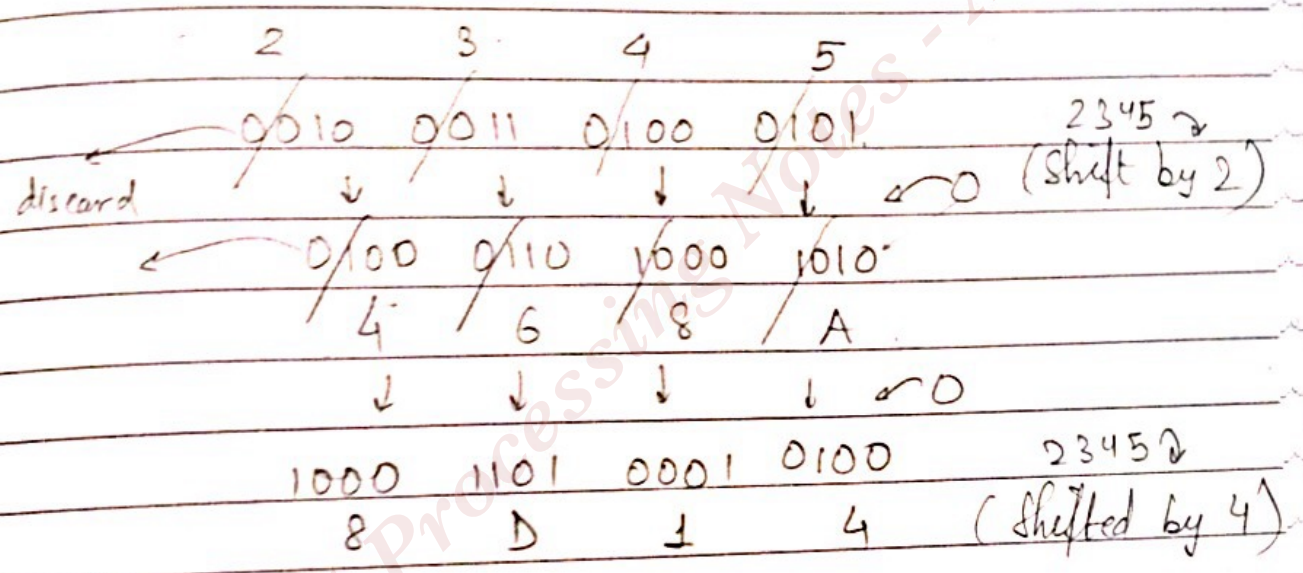 2 3 4 5
0010 0011 0100 0101 2345
discard ↓ ↓ ↓ ↓ 0 (Shift by 2)
0100 0110 1000 1010
4 6 8 A
↓ ↓ ↓ ↓ 0
1000 1101 0001 0100 2345
8 D 1 4 (Shifted by 4)
Processing Notes -